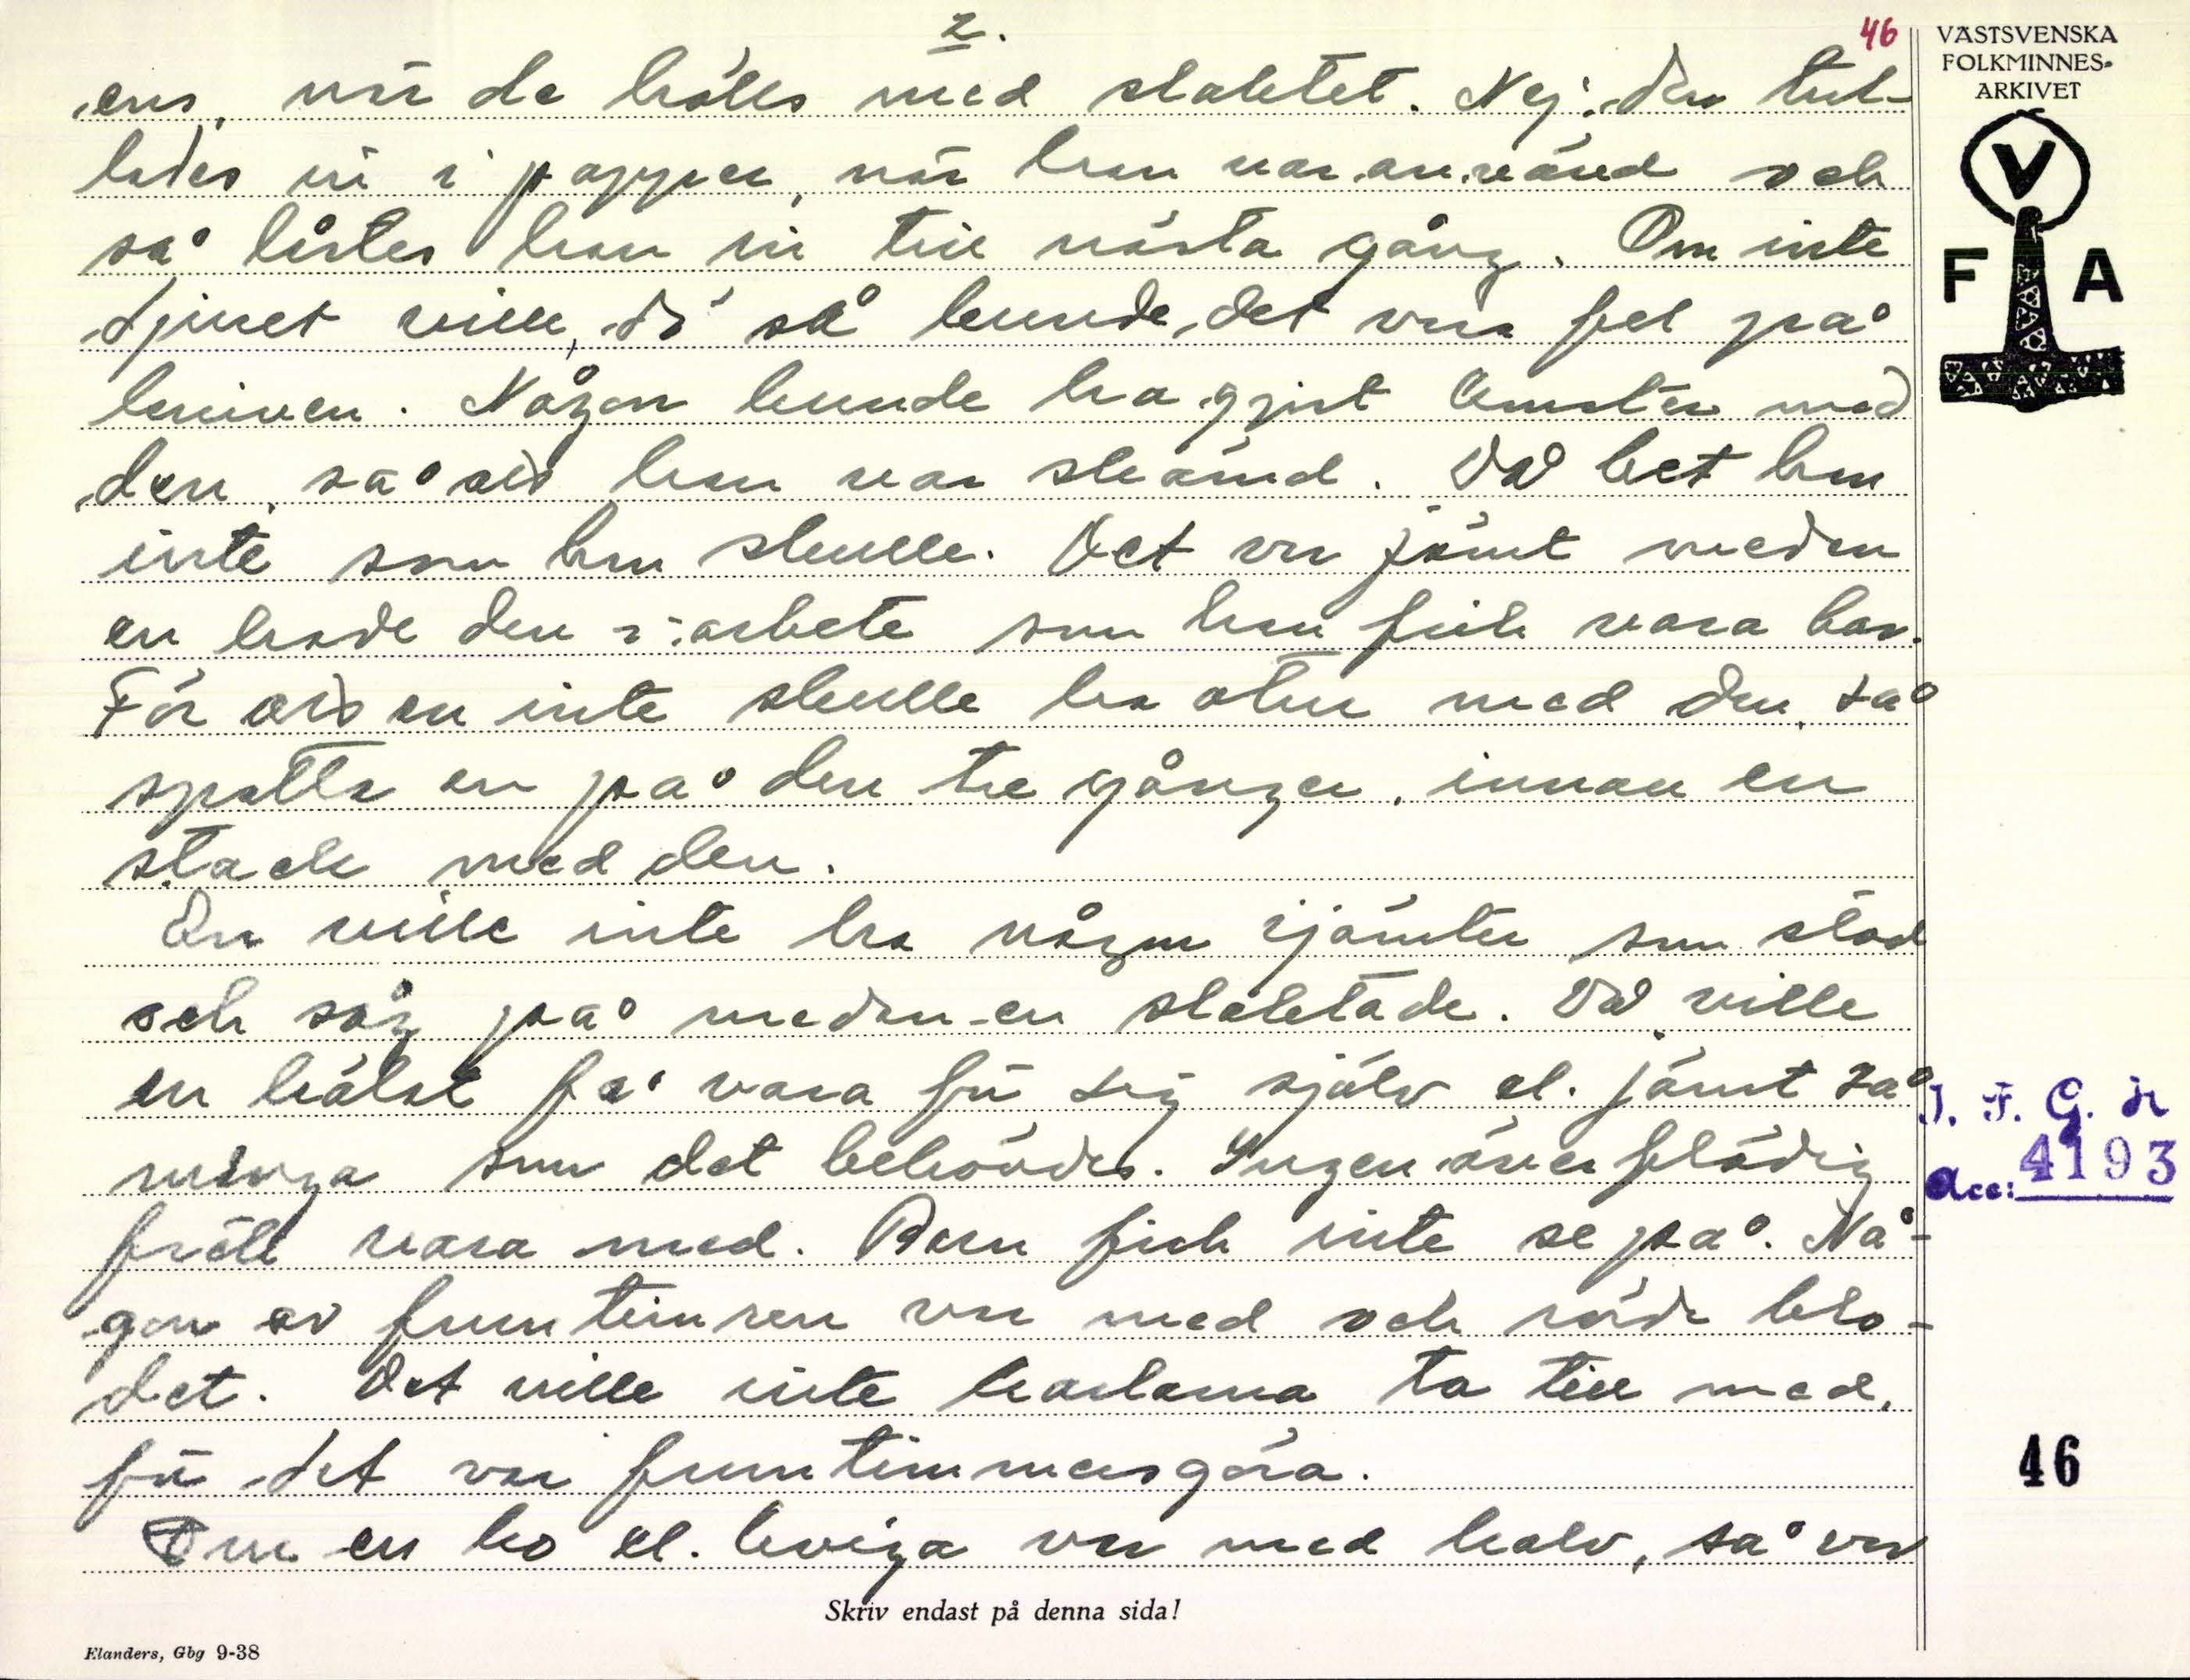 2.
46
ens, när de hölls med slaktet. Nej: den tul-
lades in i papper, när han var använd och
så låstes han in till nästa gång. Om inte
djuret ville dö så kunde det vara fel på
kniven. Någon kunde ha gjort konster med
den, så att han var skämd. Då bet han
inte som han skulle. Det var jämt medan
en hade den i arbete som han fick vara bar.
För att en inte skulle ha otur med den, så
spotta en på den tre gånger, innan en
stack med den.
En ville inte ha någon sjämter som stod
och såg på medan en slaktade. Då ville
en hälst få vara för sig själv el. jämt så
många som det behövdes. Ingen överflödig
fråck vara med. Barn fick inte se på. Nå-
gon av fruntimren var med och rörde blo-
det. Det ville inte karlarna ta till med,
för det var fruntimmersgöra.
Om en ko el. kviga var med kalv, så var
VÄSTSVENSKA
FOLKMINNES-
ARKIVET
V
F A
I. F. G. H
Acc: 4193
46
Skriv endast på denna sida!
Elanders, Gbg 9-38